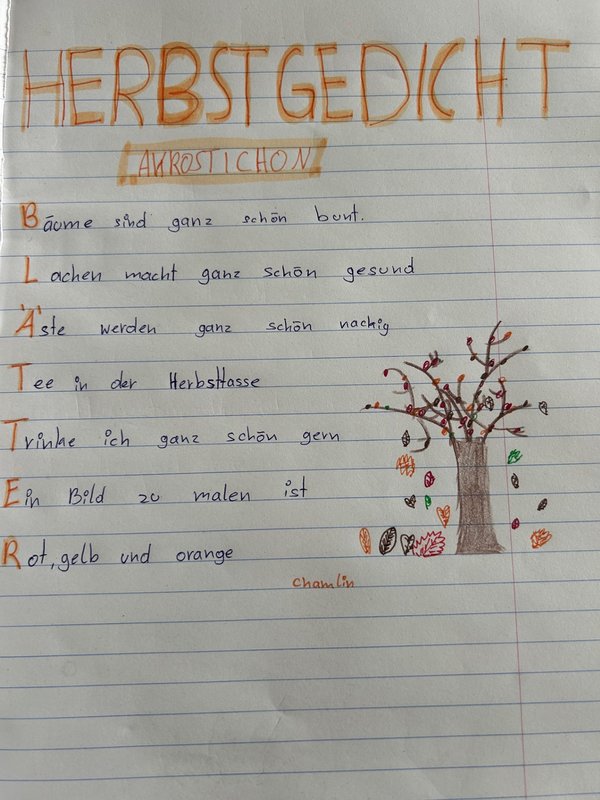 HERBSTGEDICHT
AKROSTICHON
Bäume sind ganz schön bunt.
Lachen macht ganz schön gesund
Äste werden ganz schön nackig
Tee in der Herbsttasse
Trinke ich ganz schön gern
Ein Bild zu malen ist
Rot, gelb und orange
chamlin